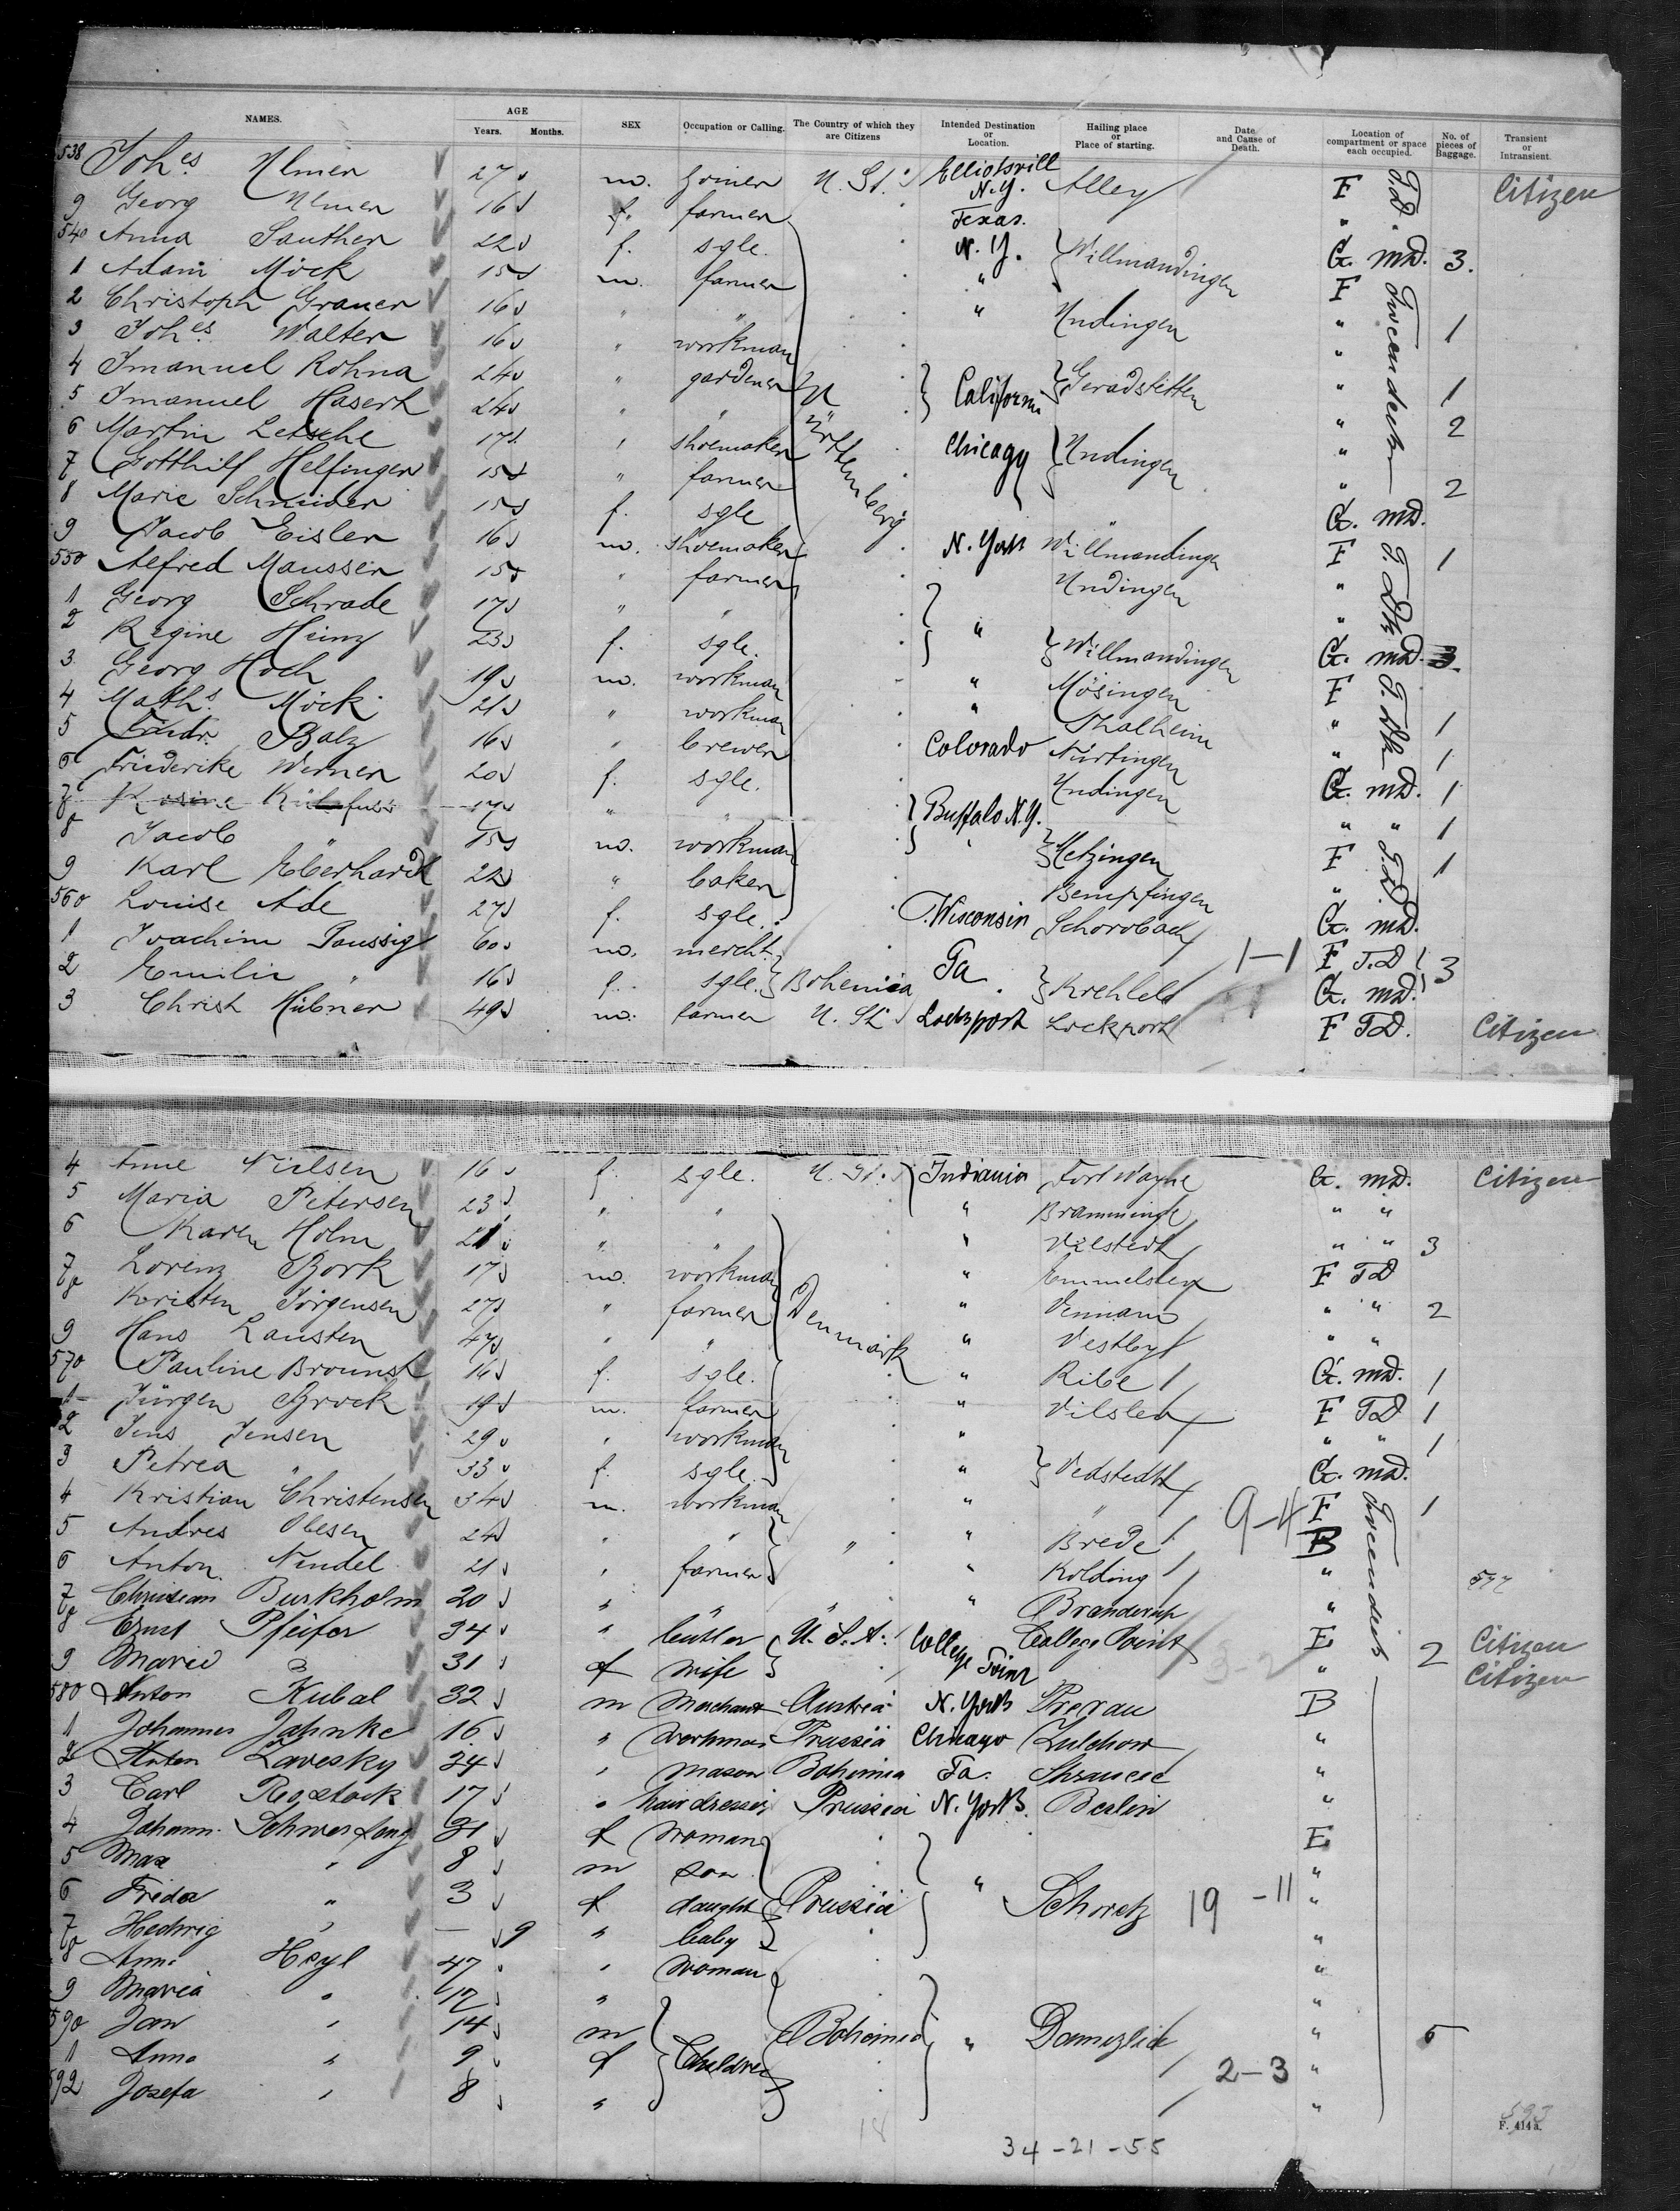 NAMES. AGE Years. Months. SEX Occupation or Calling. The Country of which they are Citizens Intended Destination or Location. Hailing place or Place of starting. Date and Cause of Death. Location of compartment or space each occupied. No. of pieces of Baggage. Transient or Intransient.
538 Joh es Ulmer 27 m. U. St. Elliotsvill N.Y. Alley F T.D. Citizen
9 Georg Ulmer 16 f. farmer Texas. "
540 Anna Sauther 22 f. sgle. N. Y. Willmandingen G. md. 3.
1 Adam Möck 15 m. farmer " F Tweendeck
2 Christoph Grauer 16 " " " Undingen " 1
3 Joh es Walter 16 " workman "
4 Imanuel Rohna 24 " gardener Württemberg Californi Geradstetten " 1
5 Imanuel Hasert 24 " " " 2
6 Martin Letsche 17 " shoemaker Chicago Undingen "
7 Gotthilf Helfinger 15 " farmer " 2
8 Marie Schneider 15 f. sgle G. md.
9 Jacob Eisler 16 m. shoemaker N. York Willmandinge F 1
550 Alfred Maussin 15 " farmer Undingen "
1 Georg Schrade 17 " " "
2 Regine Heinz 23 f. sgle. " Willmandingen G. md. 3.
3 Georg Hoch 19 m. workman " Mösingen F
4 Math s. Möck 21 " workman " Thalheim " 1
5 Balz 16 " brewer Colorado Nürtingen " 1
6 Friederike Werner 20 f. sgle. Undingen G. md. 1
7 Rosine 17 " " Buffalo N.Y. " " 1
8 Jacob " 15 m. workman Metzingen F T.D. 1
9 Karl Eberhardt 22 " baker Bempfingen "
560 Louise Ade 27 f. sgle. Wisconsin G. md.
1 Joachim Taussig 60 m. mercht. Bohemia 1-1 F T.D 3
2 Emilie " 16 f. sgle. G. md.
3 Christ Hübner 49 m. farmer U. St. Lockport Lockport F T.D. Citizen
4 Anne Nielsen 16 f. sgle. U. St. Indiania Fort Wayne G. md. Citizen
5 Maria Petersen 23 " " " Bramminge " "
6 Karen Holm 21 " " " Vilstedt " " 3
7 Lorenz Bork 17 m. workman Denmark " F T.D
8 Kristen Jörgensen 27 " farmer " " " 2
9 Hans Lausten 47 " " " Vestbyt " "
570 Pauline Brounst 16 f. sgle. " Ribe G. md. 1
1 Jürgen Brock 19 m. farmer " Vilslev F T.D 1
2 Jens Jensen 29 " workman " " " 1
3 Petrea " 33 f. sgle. " Vedstedt G. md.
4 Kristian Christensen 34 m. workman " " 9-4 F Tweendeck 1
5 Andres Olesen 24 " " " " Brede B
6 Anton Nindel 21 " farmer " Kolding "
7 Christian Burkholm 20 " " " " Branderup " 577
8 Ernst Pfeifer 34 " butler U. S. A. College Point College Point E. 2 Citizen
9 Marie " 31 f wife " Citizen
580 Anton Kubal 32 m Merchant Austria N. York Prerau B
1 Johannes Jahnke 16 " workman Prussia Chicago Zulchow "
2 Anton Zavesky 24 " mason Bohemia "
3 Carl Rostock 17 " hairdresser Prussia N. York. Berlin "
4 Johann. 31 f woman Prussia " Schwetz E.
5 Max " 8 m son "
6 Frida " 3 f daught 19 -11 "
7 Hedwig " — 9 " baby "
8 Anna Heyl 47 " woman Bohemia "
9 Maria " 17 " "
590 Jan " 14 m Children " " 5
1 Anna " 9 f 2-3 "
592 Josefa " 8 " "
18 34-21-55 593
F. 414a.